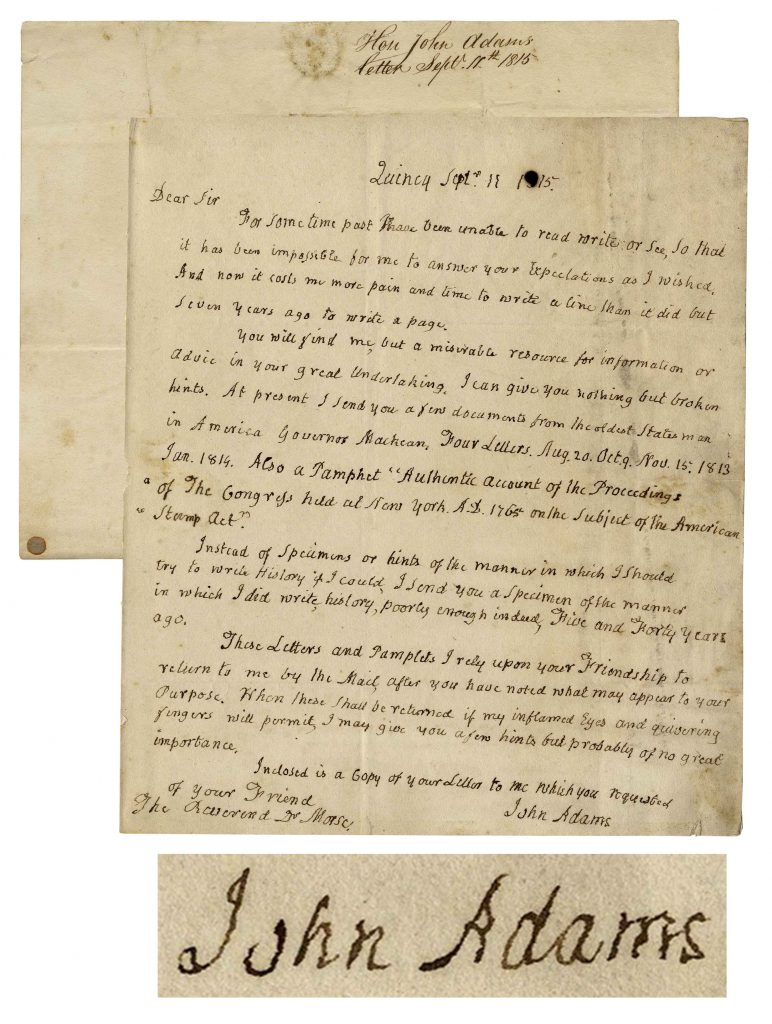 Hon John Adams
letter Septr. 11th 1815
Quincy Septr. 11 1815.
Dear Sir
For sometime past I have been unable to read write or see, so that
it has been impossible for me to answer your Expectations as I wished.
And now it costs me more pain and time to write a line than it did but
Seven years ago to write a page.
You will find me, but a misirable resource for information or
Advic in your great Undertaking. I can give you nothing but broken
hints. At present I send you a few documents from the oldest Statesman
in America Governor Mackean, Four Letters. Aug. 20. Oct. 9. Nov. 15. 1813
Jan. 1814. Also a Pamphet "Authentic account of the Proceedings
" of The Congress held at New York. A.D. 1765 on the Subject of the American
" Stamp Act".
Instead of Specimens or hints of the manner in which I should
try to write History if I could, I send you a Specimen of the manner
in which I did write, history, poorly enough indeed, Five and Forty years
ago.
These Letters and Pamplets I rely upon your Friendship to
return to me by the Mail, after you have noted what may appear to your
Purpose. When these shall be returned if my inflamed Eyes and quivering
fingers will permit, I may give you a few hints but probably of no great
importance.
Inclosed is a Copy of your Letter to me which you requested
of your Friend
John Adams
The Reverend Dr Morse.
John Adams